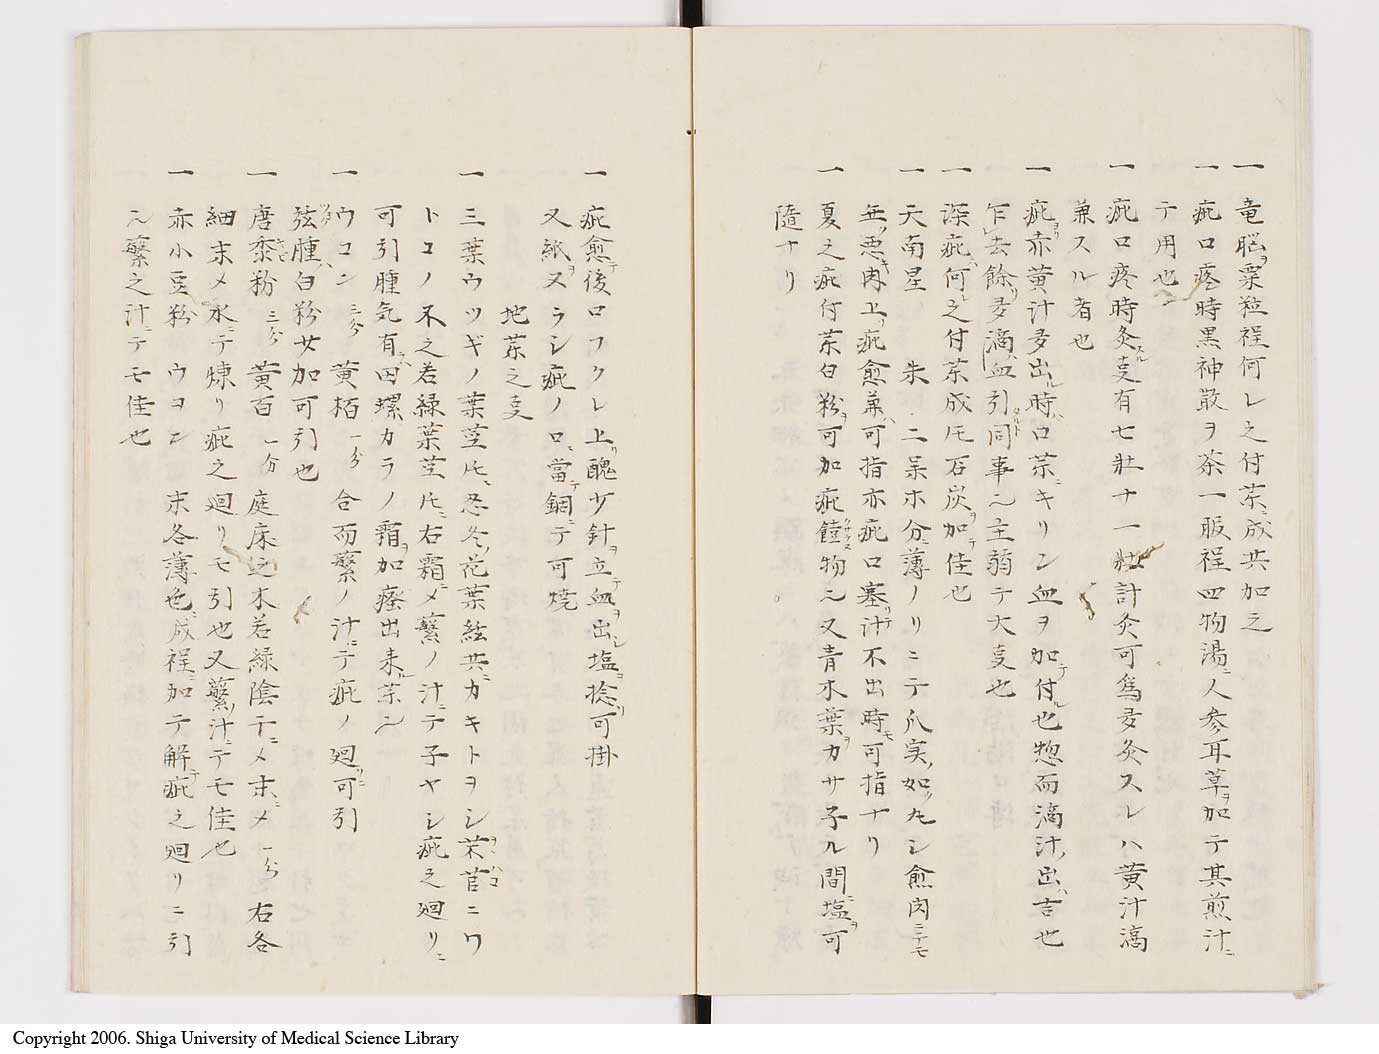 一 竜脳ヲ粟粒程何レ之付茶ニ成共加之
一 疵口疼時黒神散ヲ茶一服程四物湯ニ人参耳草ヲ加テ其煎汁ニ
テ用也
一 疵口疼時灸スル叓有七壮ナ一壮計灸可為多灸スレハ黄汁滴
兼スル者也
一 疵ヨリ赤黄汁多出ル時ハ口茶ニキリン血ヲ加テ付ル也惣而滴汁出ハ吉也
乍去余リ多滴血引同事ニ主弱テ大叓也
一 深疵ハ何レ之付茶成圧石炭ヲ加テ佳也
一 天南星 朱 二呆ホ分ニ薄ノリニテ爪実ノ如ノ丸シ愈肉ニテモ
無悪キ肉上リ疵愈兼ハ可指亦疵口塞リテ汁不出時モ可指ナリ
一 夏之疵付茶白粉ヲ可加疵饐物ニ又青木葉ヲカサ子ル間ニ塩ヲ可
随ナリ
一 疵愈テ後口フクレ上リ醜少針ヲ立テ血ヲ出シ塩ヲ捻リ可掛
又紙ヲヌラシ疵ノ口ニ當テ銅ニテ可焼
地茶之叓
一 三葉ウツギノ葉茎圧ニ忍冬ノ花葉絃共ニカキトヲシ茉苢ニワ
トコノ不之若緑葉茎圧ニ右霜ニメ蘩ノ汁ニテ子ヤシ疵之廻リニ
可引腫気有ニハ田螺カラノ霜ヲ加瘞出来ル茶ニ
一 ウコン 三分 黄栢 一分 合而蘩ノ汁ニテ疵ノ廻リニ可引
弦腫ハ白粉廿加可引也
一 唐黍粉 三分 黄百 一分 庭床之木若緑陰干ニメ末ニメ 一分 右各
細末メ水ニテ煉リ疵之廻リモ引也又蘩ノ汁ニテモ佳也
一 赤小豆粉 ウコン 末各薄色ニ成程ニ加テ解テ疵之廻リニ引
ニ蘩之汁ニテモ佳也
Copyright 2006. Shiga University of Medical Science Library